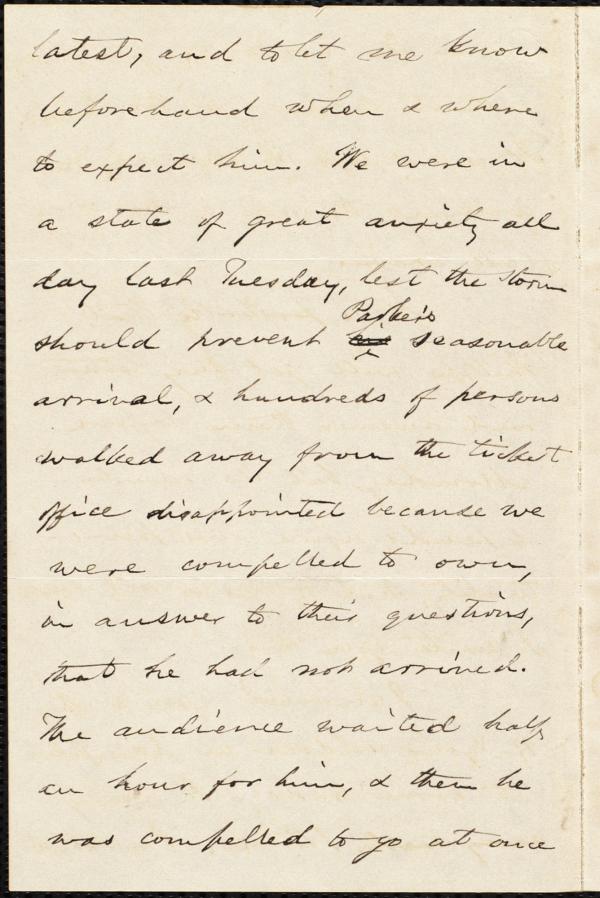 latest, and to let me know
beforehand when & where
to expect him. We were in
a state of great anxiety all
day last Tuesday, lest the storm
should prevent Parker's seasonable
arrival, & hundreds of persons
walked away from the ticket
office disappointed because we
were compelled to own,
in answer to their questions,
that he had not arrived.
The audience waited half
an hour for him, & then he
was compelled to go at once